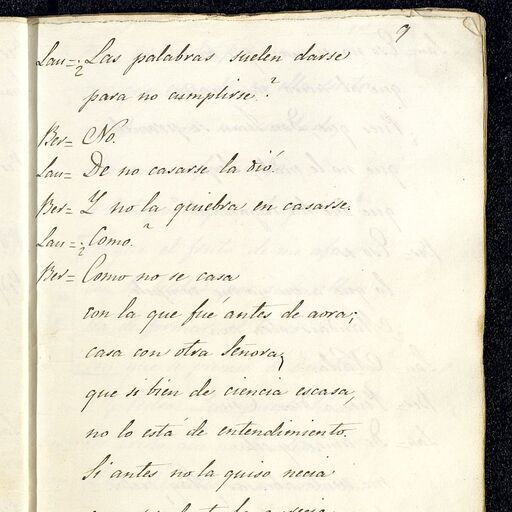 7
Lau= ¿Las palabras suelen darse
para no cumplirse?
Ber= No.
Lau= De no casarse la dió.
Ber= Y no la quiebra en casarse.
Lau= ¿Como?
Ber= Como no se casa
con la que fué antes de aora;
casa con otra Señora;
que si bien de ciencia escasa,
no lo está de entendimiento.
Si antes no la quiso necia